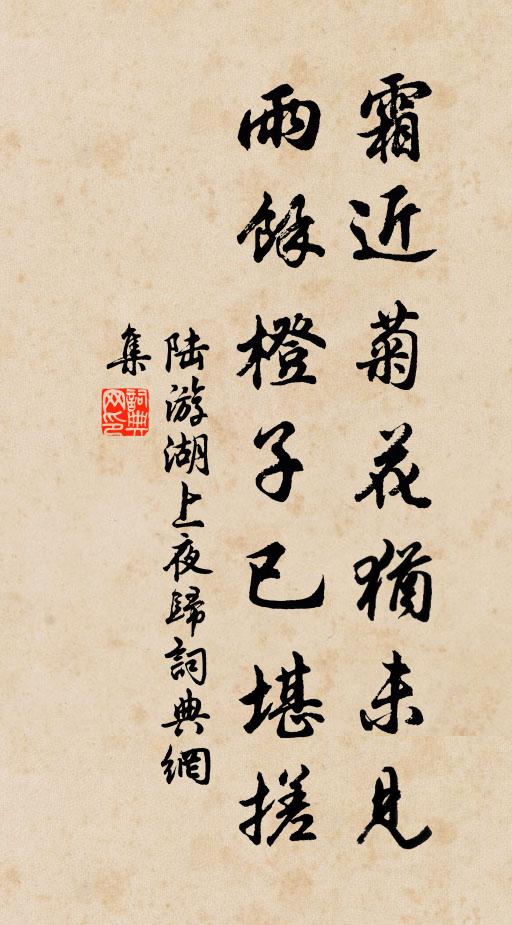 霜近菊花猶未見
雨餘橙子已堪搓
陆游湖上夜歸詞典網
集
詞典网印